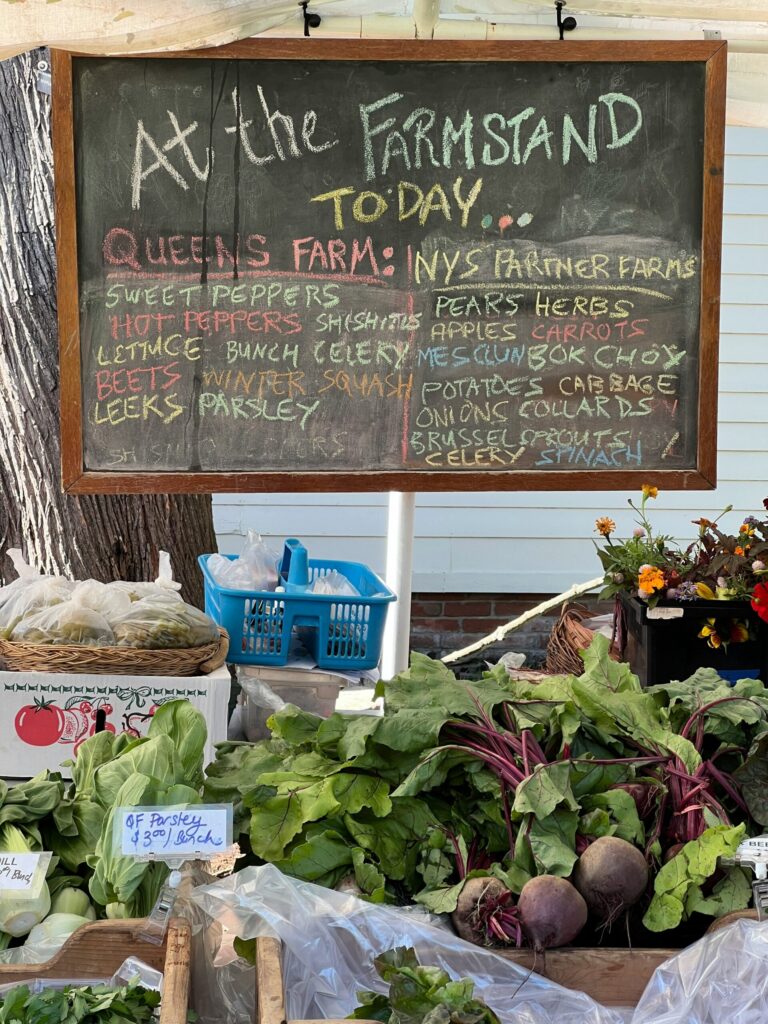 At the FARMSTAND
TODAY...
QUEENS FARM:
SWEET PEPPERS
HOT PEPPERS SHISHITOS
LETTUCE BUNCH CELERY
BEETS WINTER SQUASH
LEEKS PARSLEY
NYS PARTNER FARMS
PEARS HERBS
APPLES CARROTS
MESCLUN BOK CHOY
POTATOES CABBAGE
ONIONS COLLARDS
BRUSSEL SPROUTS
CELERY SPINACH
QF Parsley
$3.00/Bunch